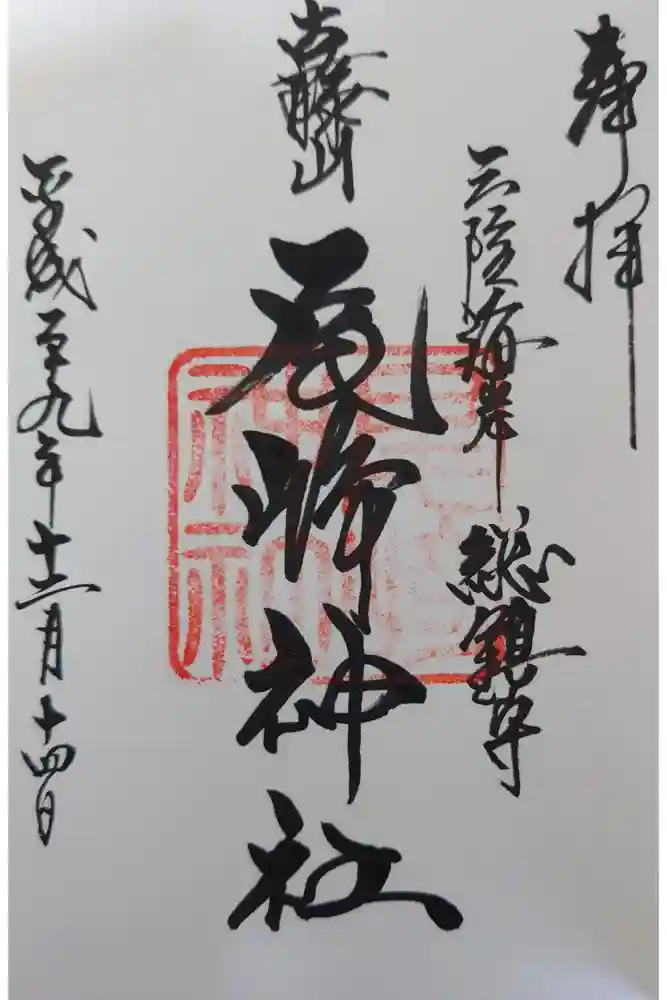 奉拝
三陸沿岸 総鎮守
尾崎神社
平成二十九年十二月十四日